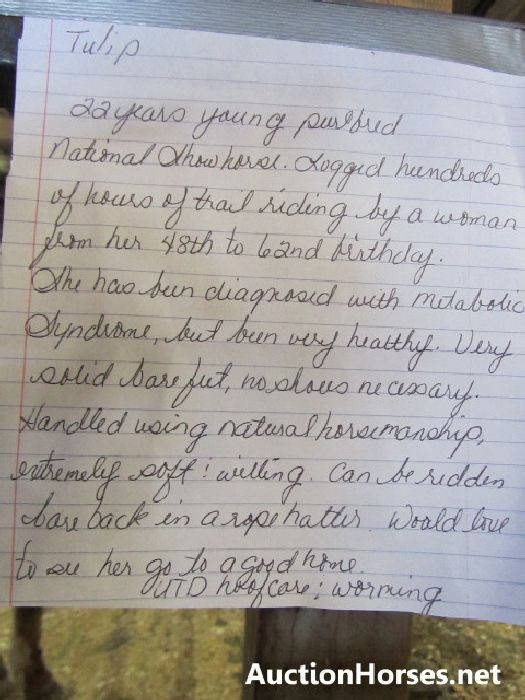 Tulip
22 years young purbred
National Show horse. Logged hundreds
of hours of trail riding by a woman
from her 48th to 62nd birthday.
She has been diagnosed with metabolic
Syndrome, but been very healthy. Very
solid bare feet, no shoes necessary.
Handled using natural horsemanship,
extremely soft & willing. Can be ridden
bare back in a rope halter. Would love
to see her go to a good home.
UTD hoofcare & worming
AuctionHorses.net